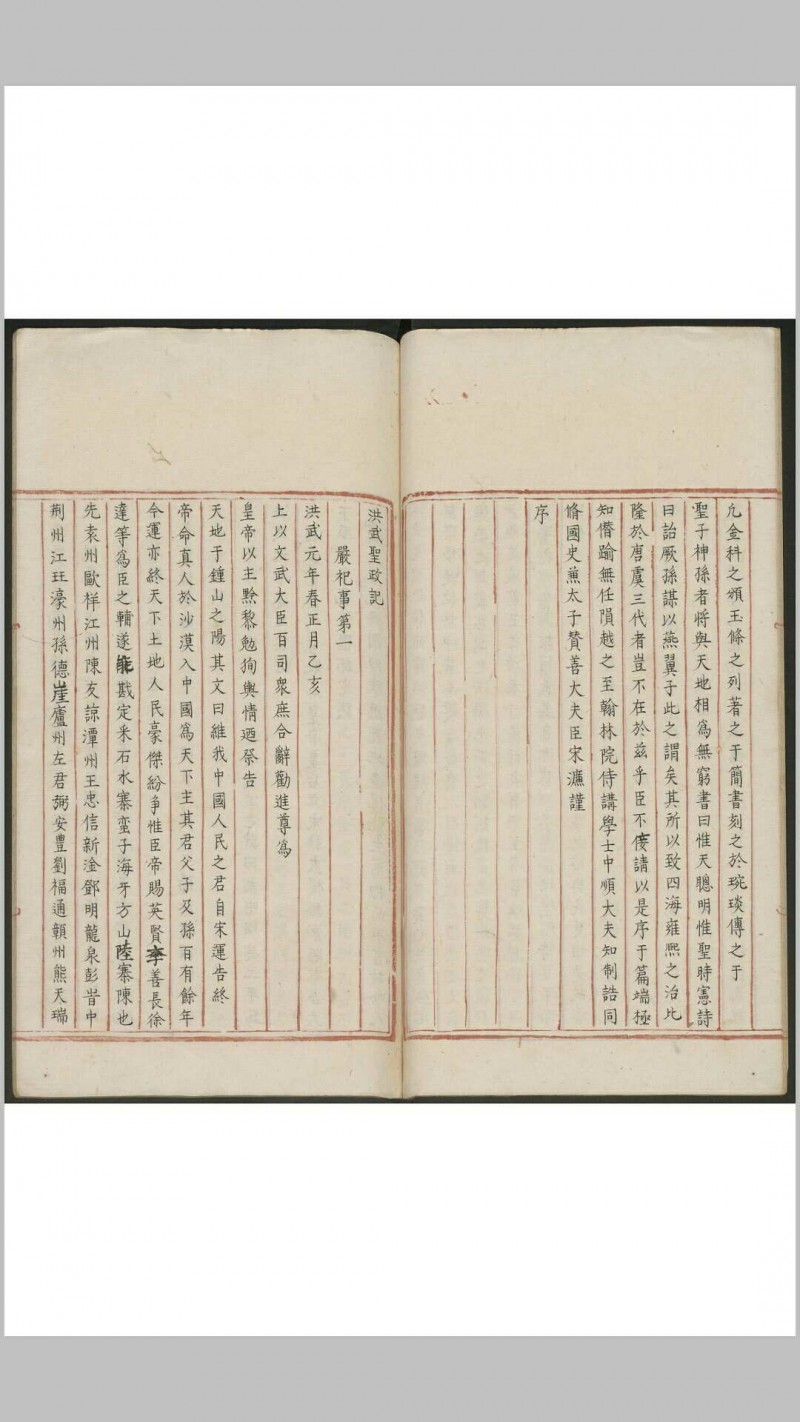 凢金科之頒玉條之列著之于簡書刻之於琬琰傳之于
聖子神孫者將與天地相為無窮書曰惟天聰明惟聖時憲詩
曰詒厥孫謀以燕翼子此之謂矣其所以致四海雍熈之治比
隆於唐虞三代者豈不在於兹乎臣不佞請以是序于篇端極
知僭踰無任隕越之至翰林院侍講學士中順大夫知制誥同
脩國史兼太子贊善大夫臣宋濂謹
序
洪武聖政記
嚴祀事第一
洪武元年春正月乙亥
上以文武大臣百司衆庶合辭勸進尊為
皇帝以主黔黎勉狥輿情廼祭告
天地于鍾山之陽其文曰維我中國人民之君自宋運告終
帝命真人於沙漠入中國為天下主其君父子及孫百有餘年
今運亦終天下土地人民豪傑紛爭惟臣帝賜英賢李善長徐
達等為臣之輔遂能戡定采石水寨蛮子海牙方山陸寨陳也
先袁州歐祥江州陳友諒潭州王忠信新淦鄧明龍泉彭旹中
荆州江珏濠州孫德崖廬州左君弼安豊劉福通贛州熊天瑞